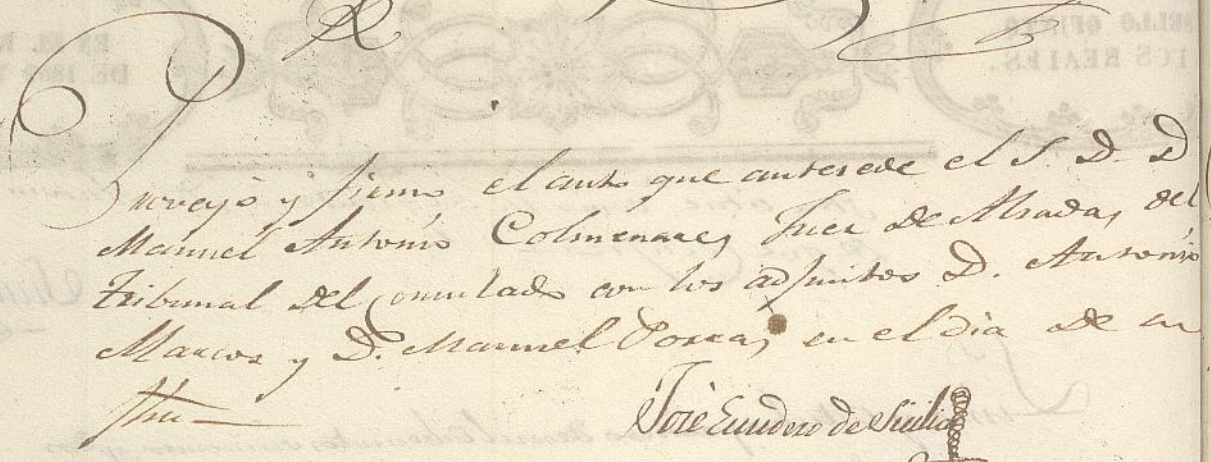 Proveyó y firmo el auto que antesede el S. D. D
Manuel Antonio Colmenares Juez de Alsadas del
Tribunal del Consulado con los adjuntos D. Antonio
Marcos y D. Manuel Porras en el dia de su
fha
José Eudero de Sicilia